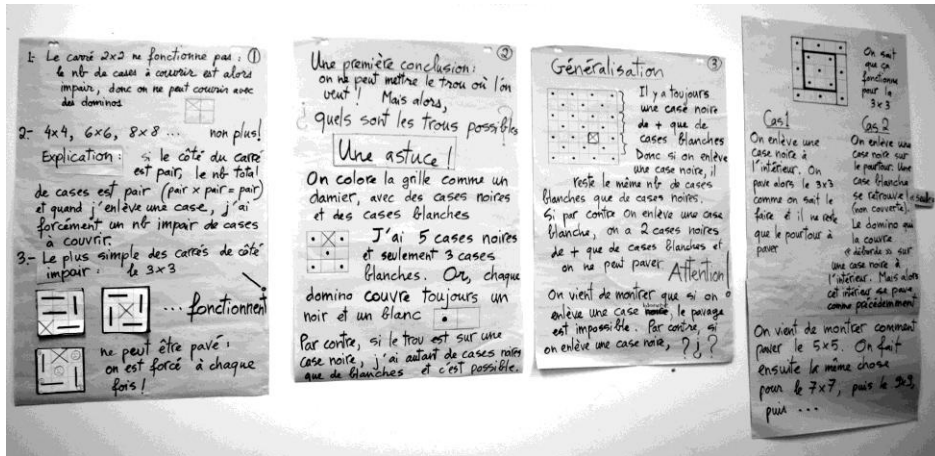 ①
1- Le carré 2x2 ne fonctionne pas :
le nb de cases à couvrir est alors
impair, donc on ne peut couvrir avec
des dominos
2.- 4x4, 6x6, 8x8 ... non plus!
Explication : si le côté du carré
est pair, le nb total
de cases est pair (pair x pair = pair)
et quand j'enlève une case, j'ai
forcément un nb impair de cases
à couvrir.
3.- Le plus simple des carrés de côté
impair : le 3x3
... fonctionnent
ne peut être pavé :
on est forcé à chaque
fois !
②
Une première conclusion :
on ne peut mettre le trou où l'on
veut ! Mais alors,
¿ quels sont les trous possibles ?
Une astuce !
On colore la grille comme un
damier, avec des cases noires
et des cases blanches
J'ai 5 cases noires
et seulement 3 cases
blanches. Or, chaque
domino couvre toujours un
noir et un blanc
Par contre, si le trou est sur une
case noire, j'ai autant de cases noires
que de blanches et c'est possible.
③
Généralisation
Il y a toujours
une case noire
de + que de
cases blanches
Donc si on enlève
une case noire, il
reste le même nb de cases
blanches que de cases noires.
Si par contre on enlève une case
blanche, on a 2 cases noires
de + que de cases blanches et
on ne peut paver
Attention!
On vient de montrer que si on
enlève une case blanche, le pavage
est impossible. Par contre, si
on enlève une case noire, ? ¿ ?
On sait
que ça
fonctionne
pour le
3x3
Cas 1
On enlève une
case noire à
l'intérieur. On
pave alors le 3x3
comme on sait le
faire et il ne reste
que le pourtour à
paver
Cas 2
On enlève une
case noire sur
le pourtour. Une
case blanche
se retrouve seule
(non couverte).
Le domino qui
la couvre
« déborde » sur
une case noire à
l'intérieur. Mais alors
cet intérieur se pave
comme précédemment
On vient de montrer comment
paver le 5x5. On fait
ensuite la même chose
pour le 7x7, puis le 9x9,
puis ...